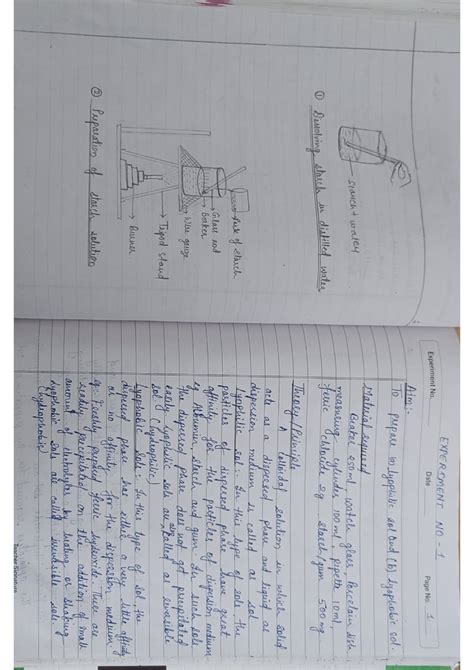 starch + water
① Dissolving starch in distilled water
Paste of starch
Glass rod
Beaker
Wire gauze
Tripod stand
Burner
② Preparation of starch solution
Experiment No.
Date
Page No. 1
EXPERIMENT NO - 1
Aim:-
To prepare (a) lyophilic sol and (b) lyophobic sol.
Material required
Beaker 250 ml, watch glass, porcelain dish
measuring cylinder 100 ml, pipette 10 ml,
ferric chloride 2g starch/gum 500 mg
Theory/Principle
A colloidal solution in which solid
acts as a dispersed phase and liquid as
dispersion medium is called as sol.
Lyophilic sol: In this type of sols the
particles of dispersed phase have great
affinity for the particles of dispersion medium
eg. Albumin, starch and gum. In such sols
the dispersed phase do not get precipitated
easily lyophilic sols are called as reversible
sol. (hydrophilic)
Lyophobic sols: In this type of sol, the
dispersed phase has either a very little affinity
or no affinity for the dispersion medium
eg:- Freshly prepared ferric hydroxide. These are
readily precipitated on the addition of small
amount of electrolytes by heating or shaking
lyophobic sol are called irreversible sols.
(hydrophobic)
Teacher Signature